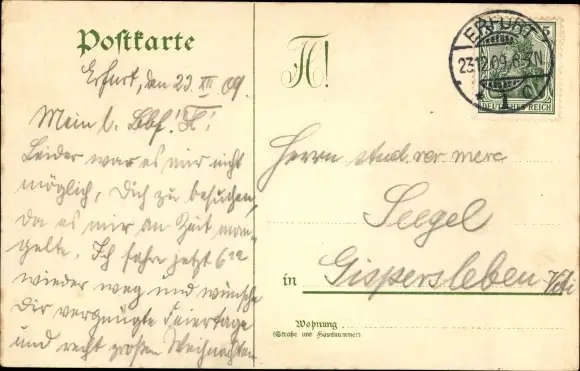 Postkarte
Erfurt, den 23. XII 09.
Mein l. Lbf.!
Leider war es mir nicht
möglich, Dich zu besuchen,
da es mir an Zeit man-
gelte. Ich fahre jetzt 6
wieder weg und wünsche
Dir vergnügte Feiertage
und recht großen Weihnachten
ERFURT
23.12.09. 6-7N
* 1 c
5
DEUTSCHES REICH
Herrn stud. rer. merc
Seegel
in Gispersleben
Wohnung
(Straße und Hausnummer)